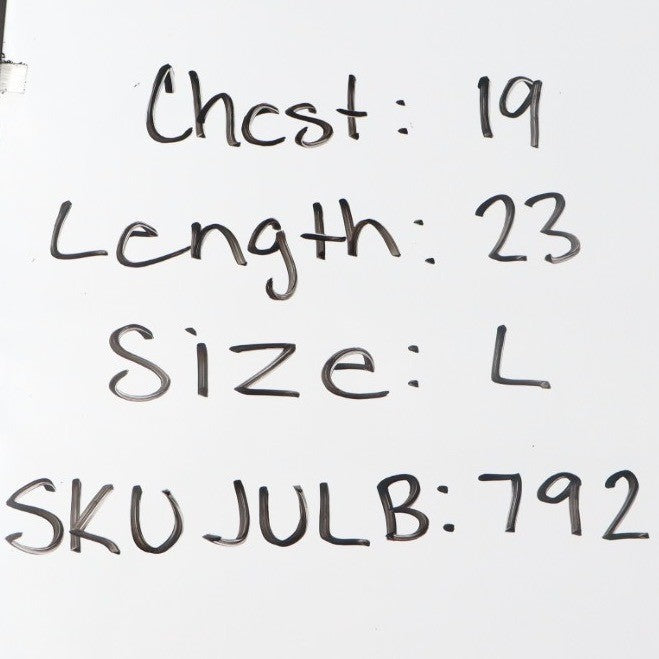 Chest: 19
Length: 23
Size: L
SKU JULB: 792